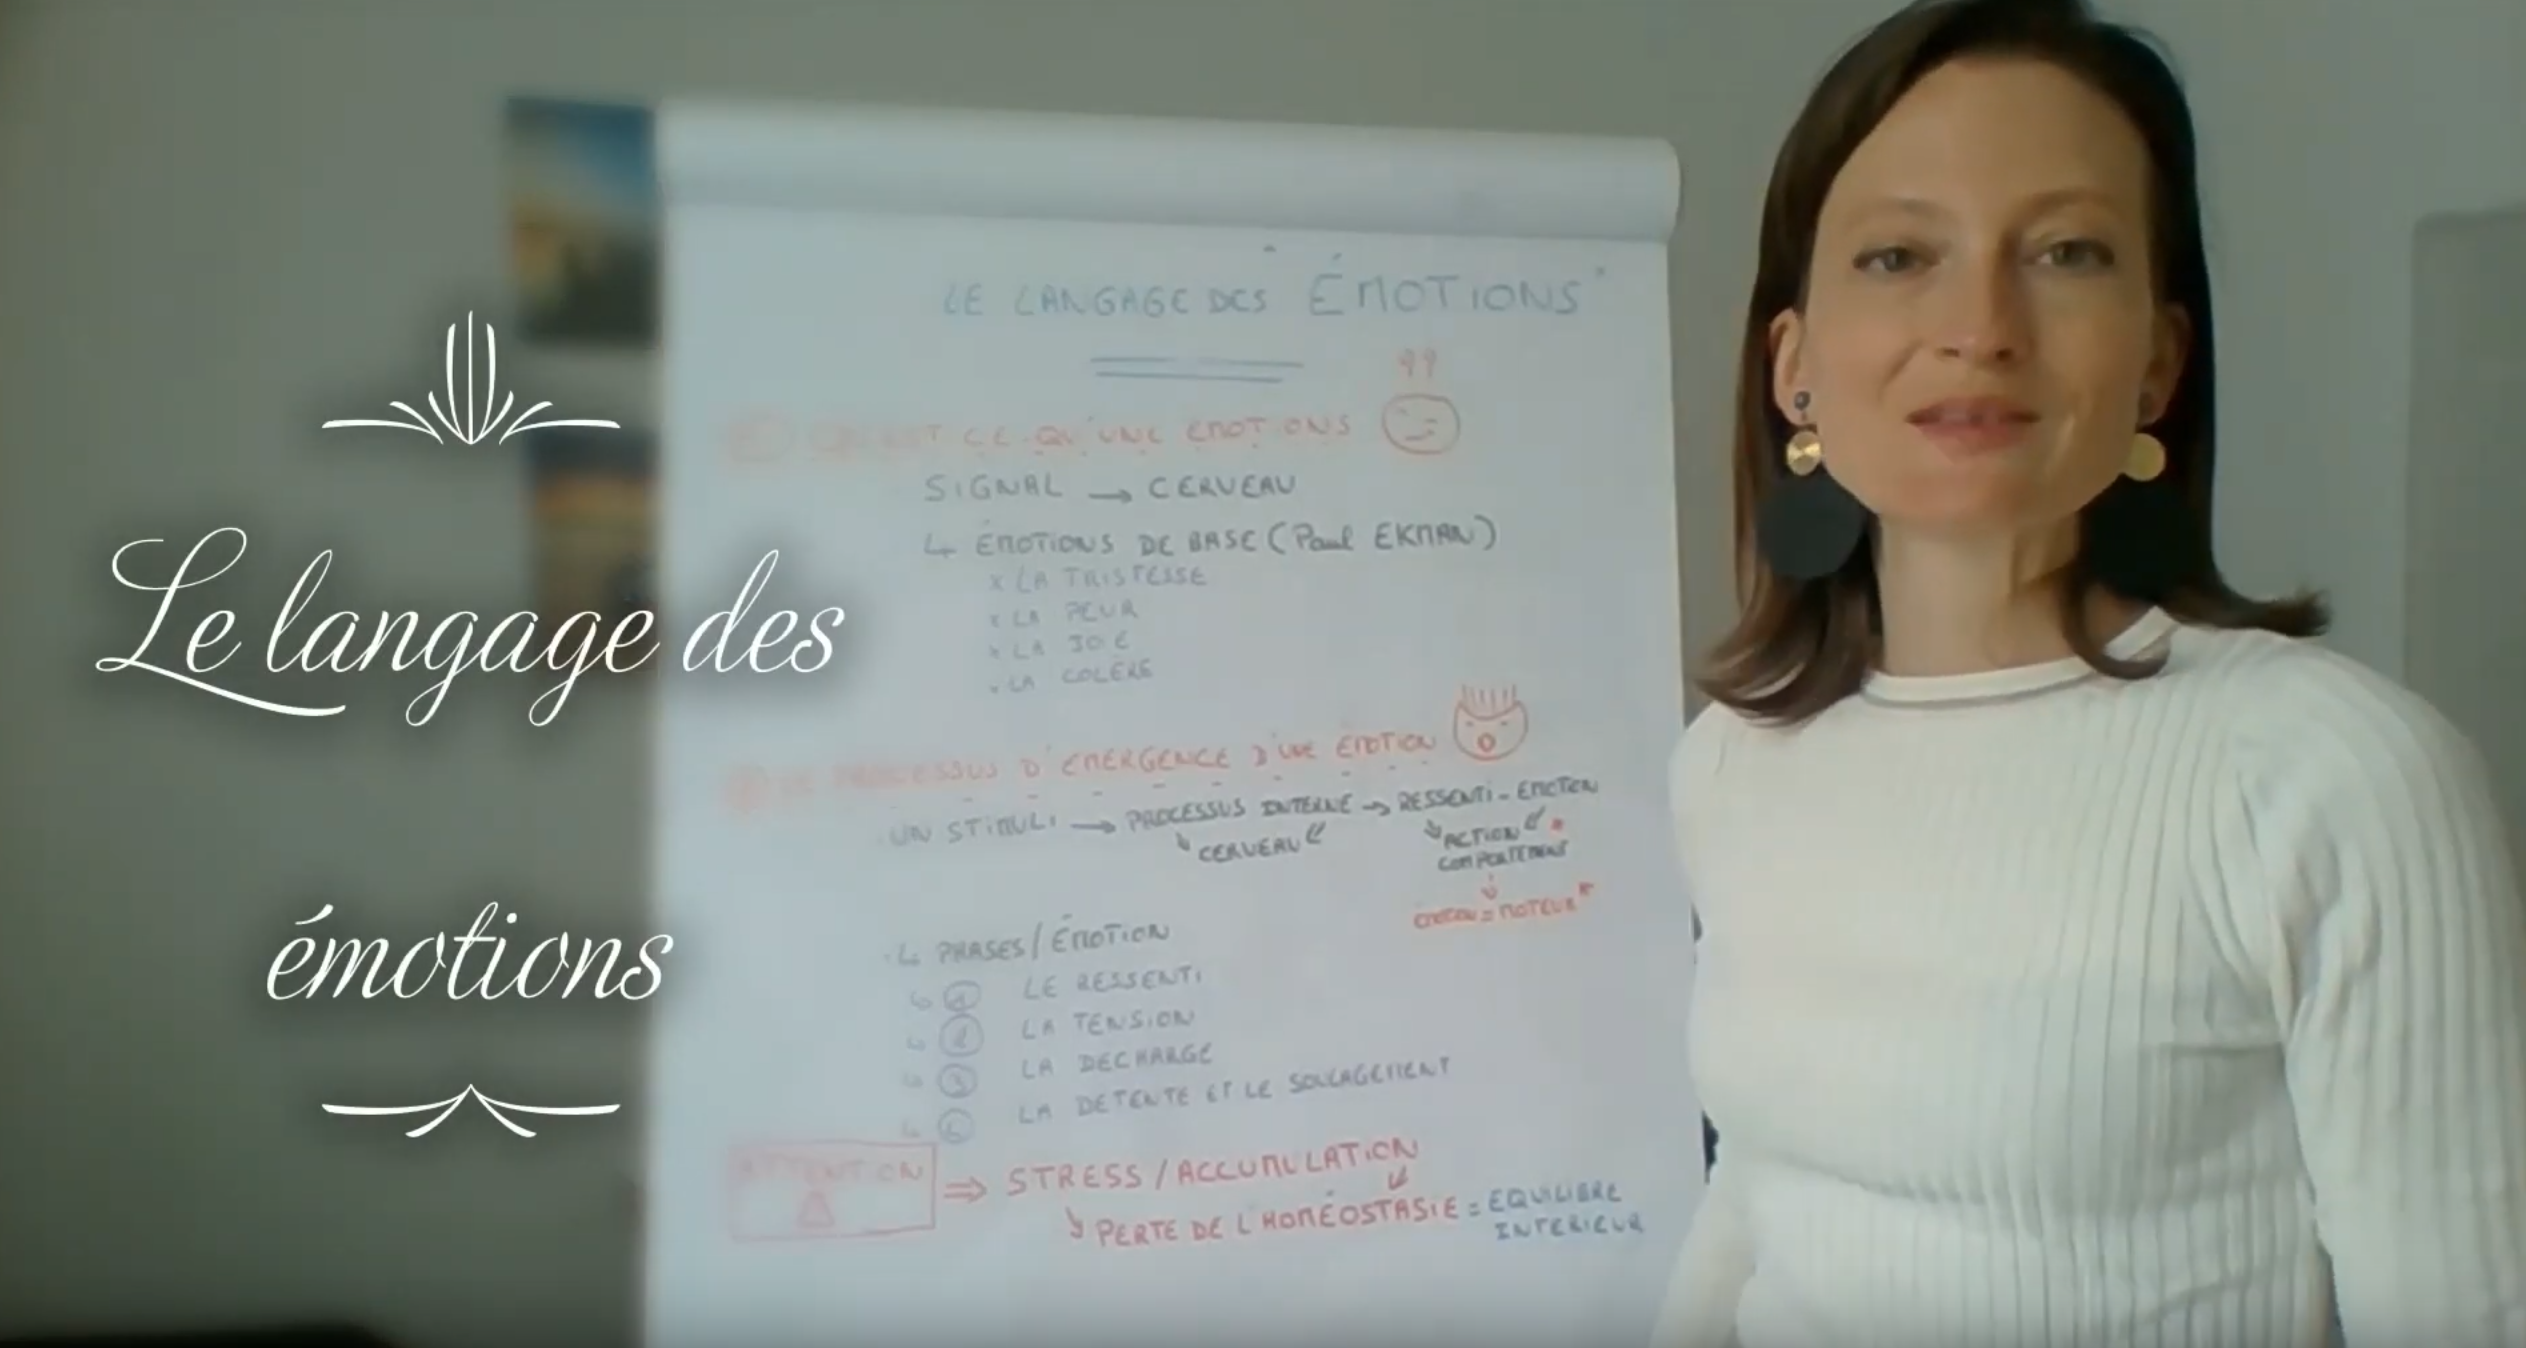 Le langage des
émotions
LE LANGAGE DES "ÉMOTIONS"
??
QU'EST CE QU'UNE EMOTIONS
SIGNAL → CERVEAU
↳ ÉMOTIONS DE BASE (Paul EKMAN)
x LA TRISTESSE
x LA PEUR
x LA JOIE
x LA COLÈRE
LE PROCESSUS D'EMERGENCE D'UNE ÉMOTION
UN STIMULI → PROCESSUS INTERNE → RESSENTI - EMOTION
CERVEAU
ACTION
COMPORTEMENT
EMOTION = MOTEUR*
↳ PHASES / ÉMOTION
↳ 1 LE RESSENTI
↳ 2 LA TENSION
↳ 3 LA DECHARGE
↳ LA DETENTE ET LE SOULAGEMENT
ATTENTION ⇒ STRESS / ACCUMULATION
PERTE DE L'HOMÉOSTASIE = EQUILIBRE
INTERIEUR